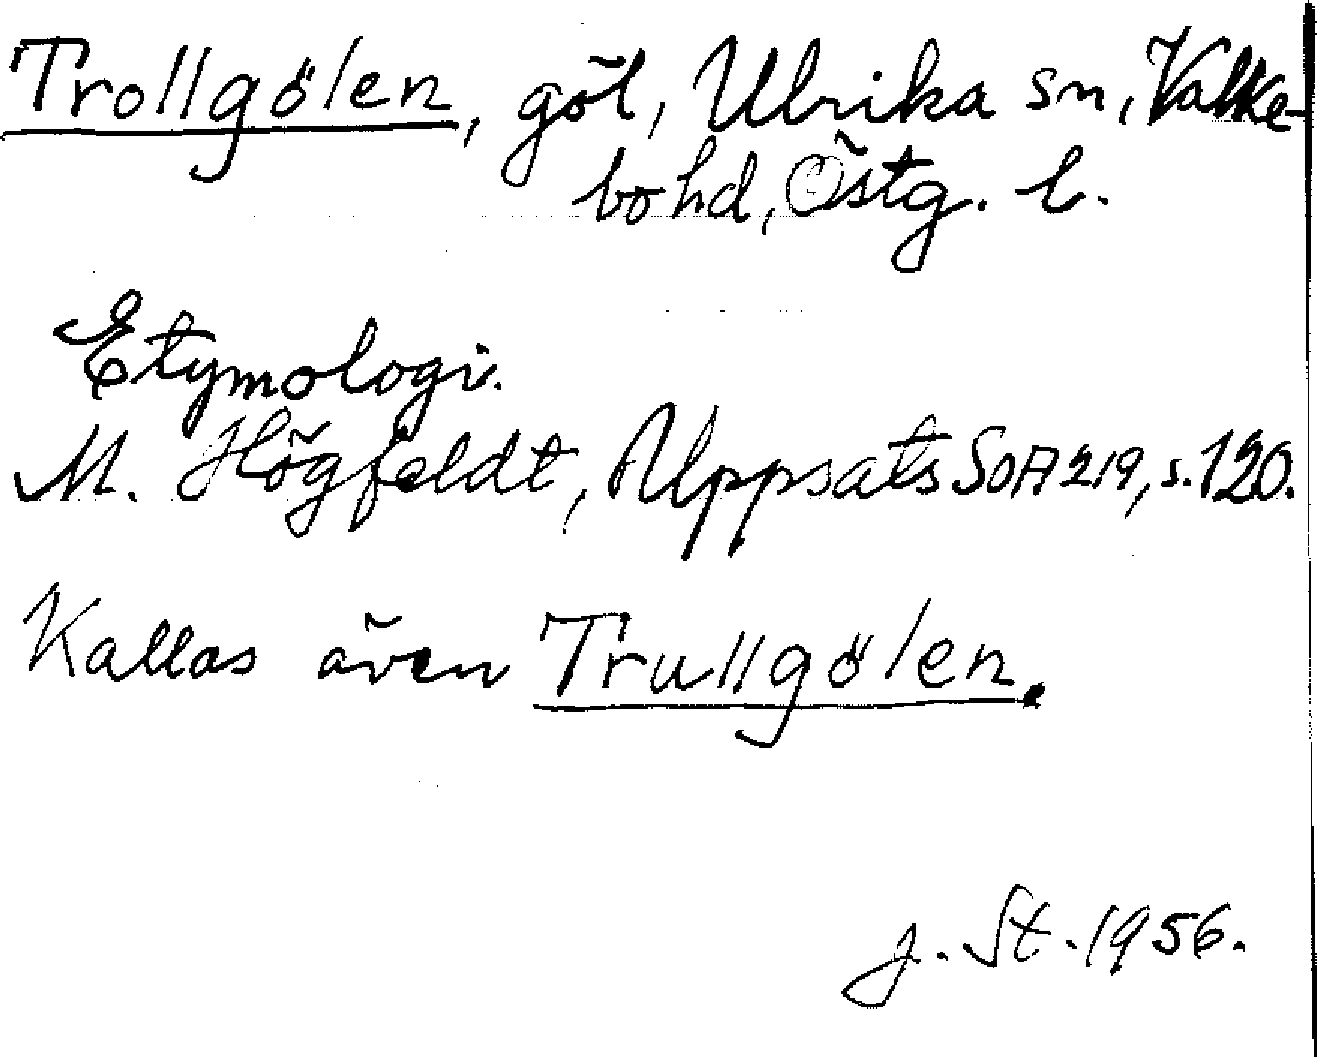 Trollgölen, göl, Ulrika sn, Valke-
bo hd, Östg. l.
Etymologi.
M. Högfeldt, Uppsats SOA 219, s. 120.
Kallas även Trullgölen.
J. St. 1956.